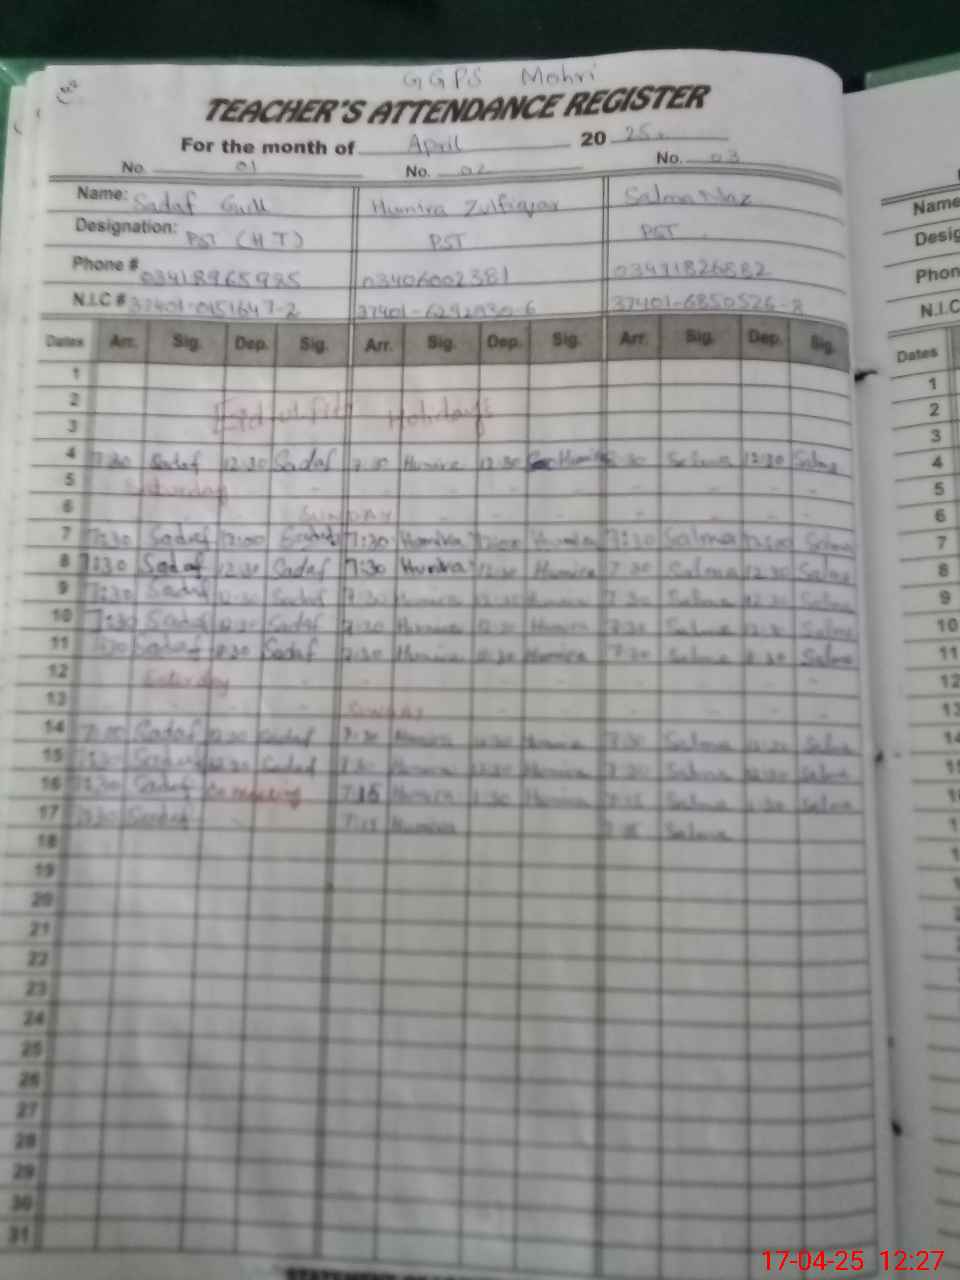 GGPS Mohri
TEACHER'S ATTENDANCE REGISTER
For the month of April 20 25
No. 01 No. 02 No. 03
Name: Sadaf Gull Humira Zulfiqar Salma Naz
Designation: PST (HT) PST PST
Phone # 03418965985 03406002381
N.I.C #
Dates Arr. Sig. Dep. Sig. Arr. Sig. Dep. Sig. Arr. Sig. Dep. Sig.
1
2 Eid ul fitr Holidays
3
4 7:30 Sadaf 12:30 Sadaf 7:30 Humira 12:30 Humira 7:30 Salma 12:30 Salma
5 Saturday - - - - - - -
6 - - SUNDAY - - - - - -
7 7:30 Sadaf 12:00 Sadaf 7:30 Humira 12:00 Humira 7:30 Salma 12:00 Salma
8 7:30 Sadaf 12:30 Sadaf 7:30 Humira 12:30 Humira 7:30 Salma 12:30 Salma
9 7:30 Sadaf 12:30 Sadaf 7:30 Humira 12:30 Humira 7:30 Salma 12:30 Salma
10 7:30 Sadaf 12:30 Sadaf 7:30 Humira 12:30 Humira 7:30 Salma Salma
11 7:30 Sadaf Sadaf 7:30 Humira Humira 7:30 Salma Salma
12 Saturday - - - - - - -
13 - - - SUNDAY - - - - - -
14 Sadaf 12:30 Sadaf 7:30 Humira 12:30 Humira 7:30 Salma 12:30 Salma
15 7:30 Sadaf 12:30 Sadaf 7:30 Humira 12:30 Humira 7:30 Salma Salma
16 7:30 Sadaf On meeting 7:15 Humira Humira 7:15 Salma Salma
17 7:30 Sadaf 7:15 Humira 7:15 Salma
18
19
20
21
22
23
24
25
26
27
28
29
30
31
Name
Phon
N.I.C
Dates
1
2
3
4
5
6
7
8
9
10
11
17-04-25 12:27